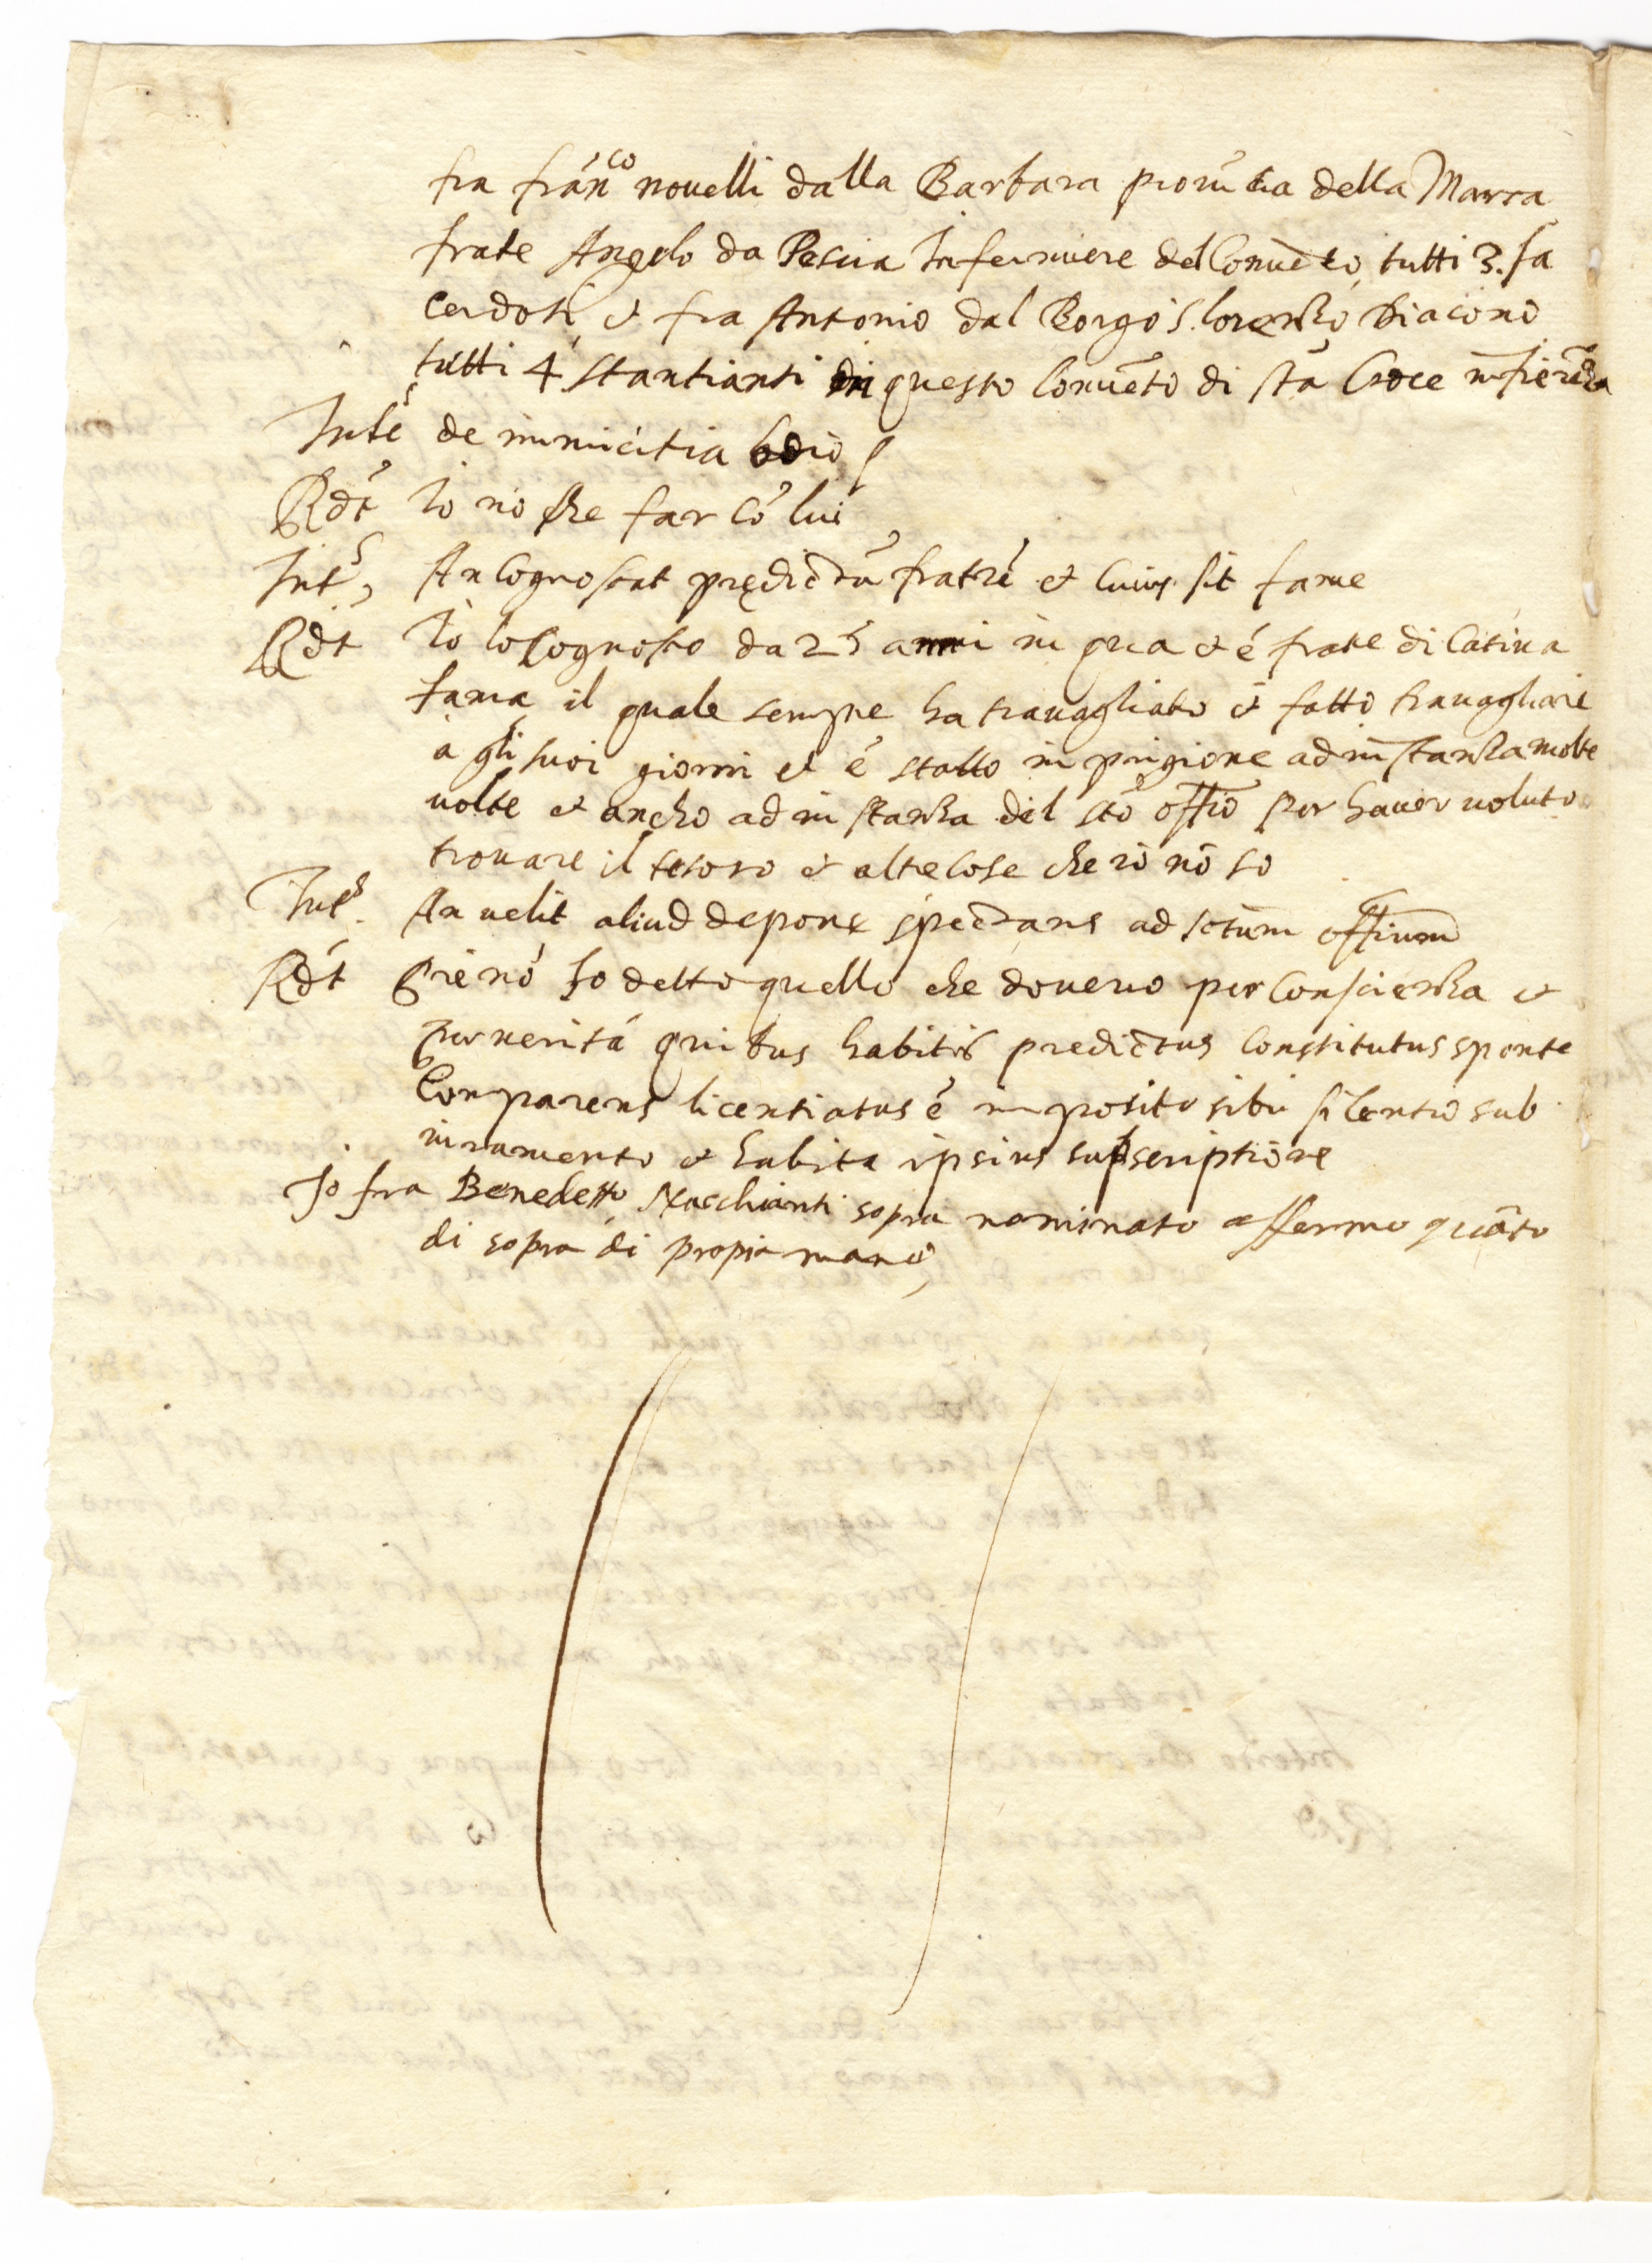 fra franco novelli dalla Barbara provĩcia della Marca
frate Angelo da Pescia Infermiere del Conuẽto, tutti 3. sa
cerdoti, et fra Antonio dal Borgo S. lorenzo, Diacono
tutti 4 stantianti in questo Conuẽto di sta Croce in fiorẽza
Inte de inimicitia odio
Rdt Io nõ ho che far cõ lui
Ints An cognoscat prędictũ fratrẽ et cuius sit fame
Rdt Io lo cognosco da 25 anni in qua et é frate di Catiua
fama il quale sempre ha trauagliato et fatto trauagliare
a gli suoi giorni et é statto in prigione ad instanza molte
uolte et ancho ad instanza del sto offio per hauer uoluto
trouare il tesoro et altre cose che io nõ so
Ints An uelit aliud deponere spectans ad sctum offitium
Rdt Pre nó ho detto quello che doueuo per Conscienza et
per ueritá quibus habitis predictus Constitutus sponte
Comparens licentiatus é imposito sibi silentio sub
iuramento et habita ipsius subscriptione
Io fra Benedetto Nacchianti sopra nominato affermo quãto
di sopra di propia mano